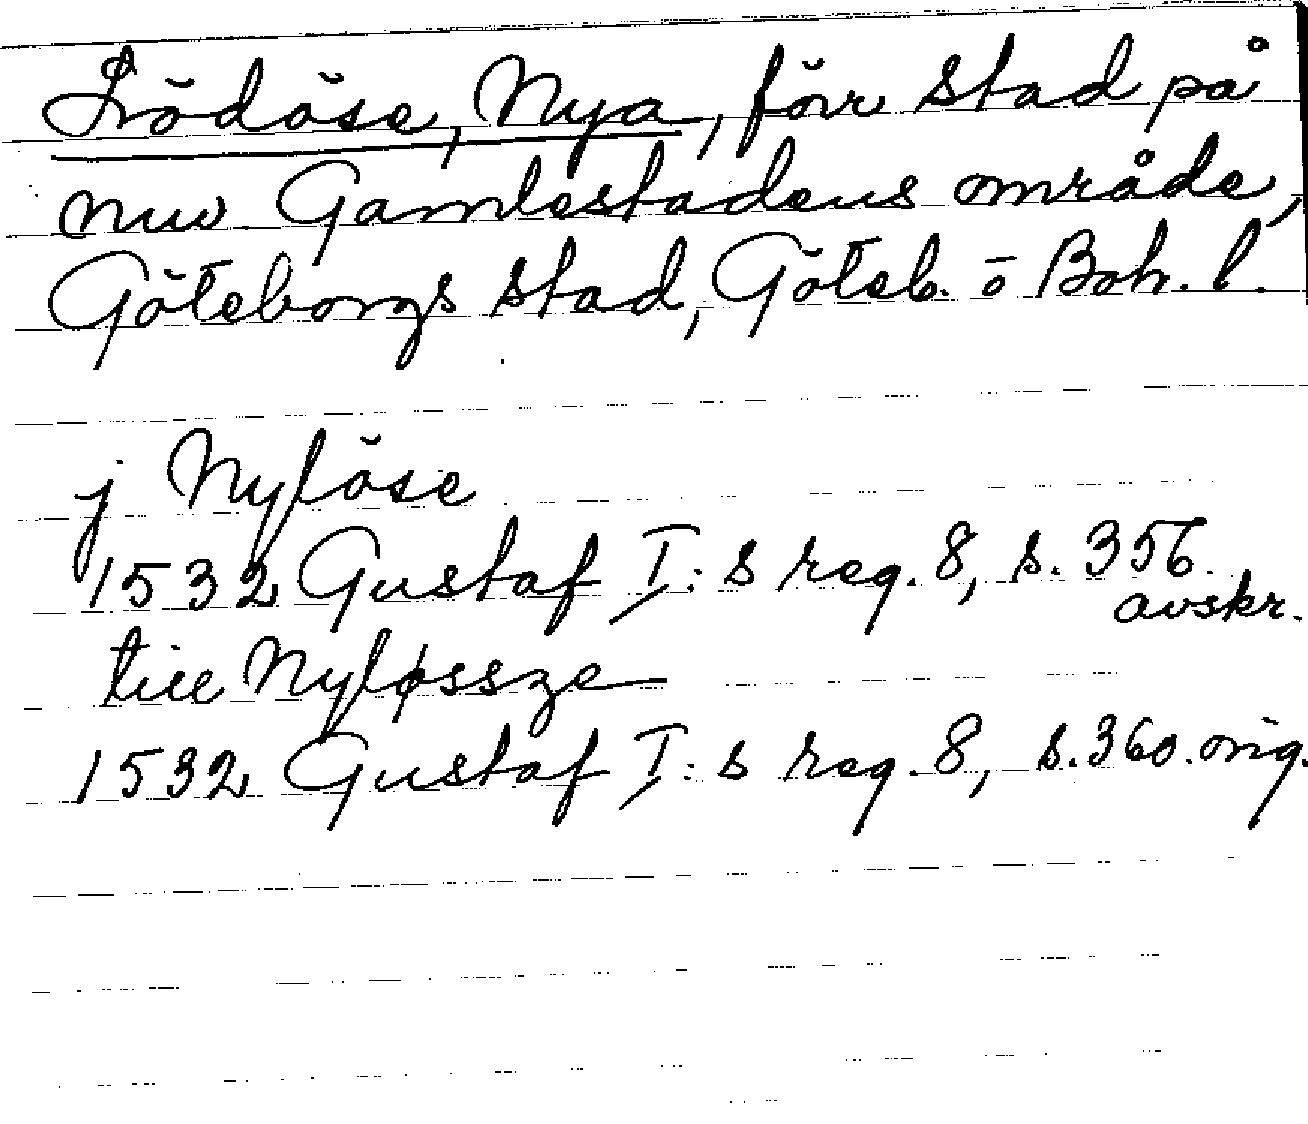 Lödöse, Nya, förr stad på
nuv Gamlestadens område,
Göteborgs stad, Göteb. o Boh. l.
j Nylöse
1532 Gustaf I:s reg. 8, s. 356.
avskr.
till Nyløssze
1532 Gustaf I:s reg. 8, s. 360. orig.